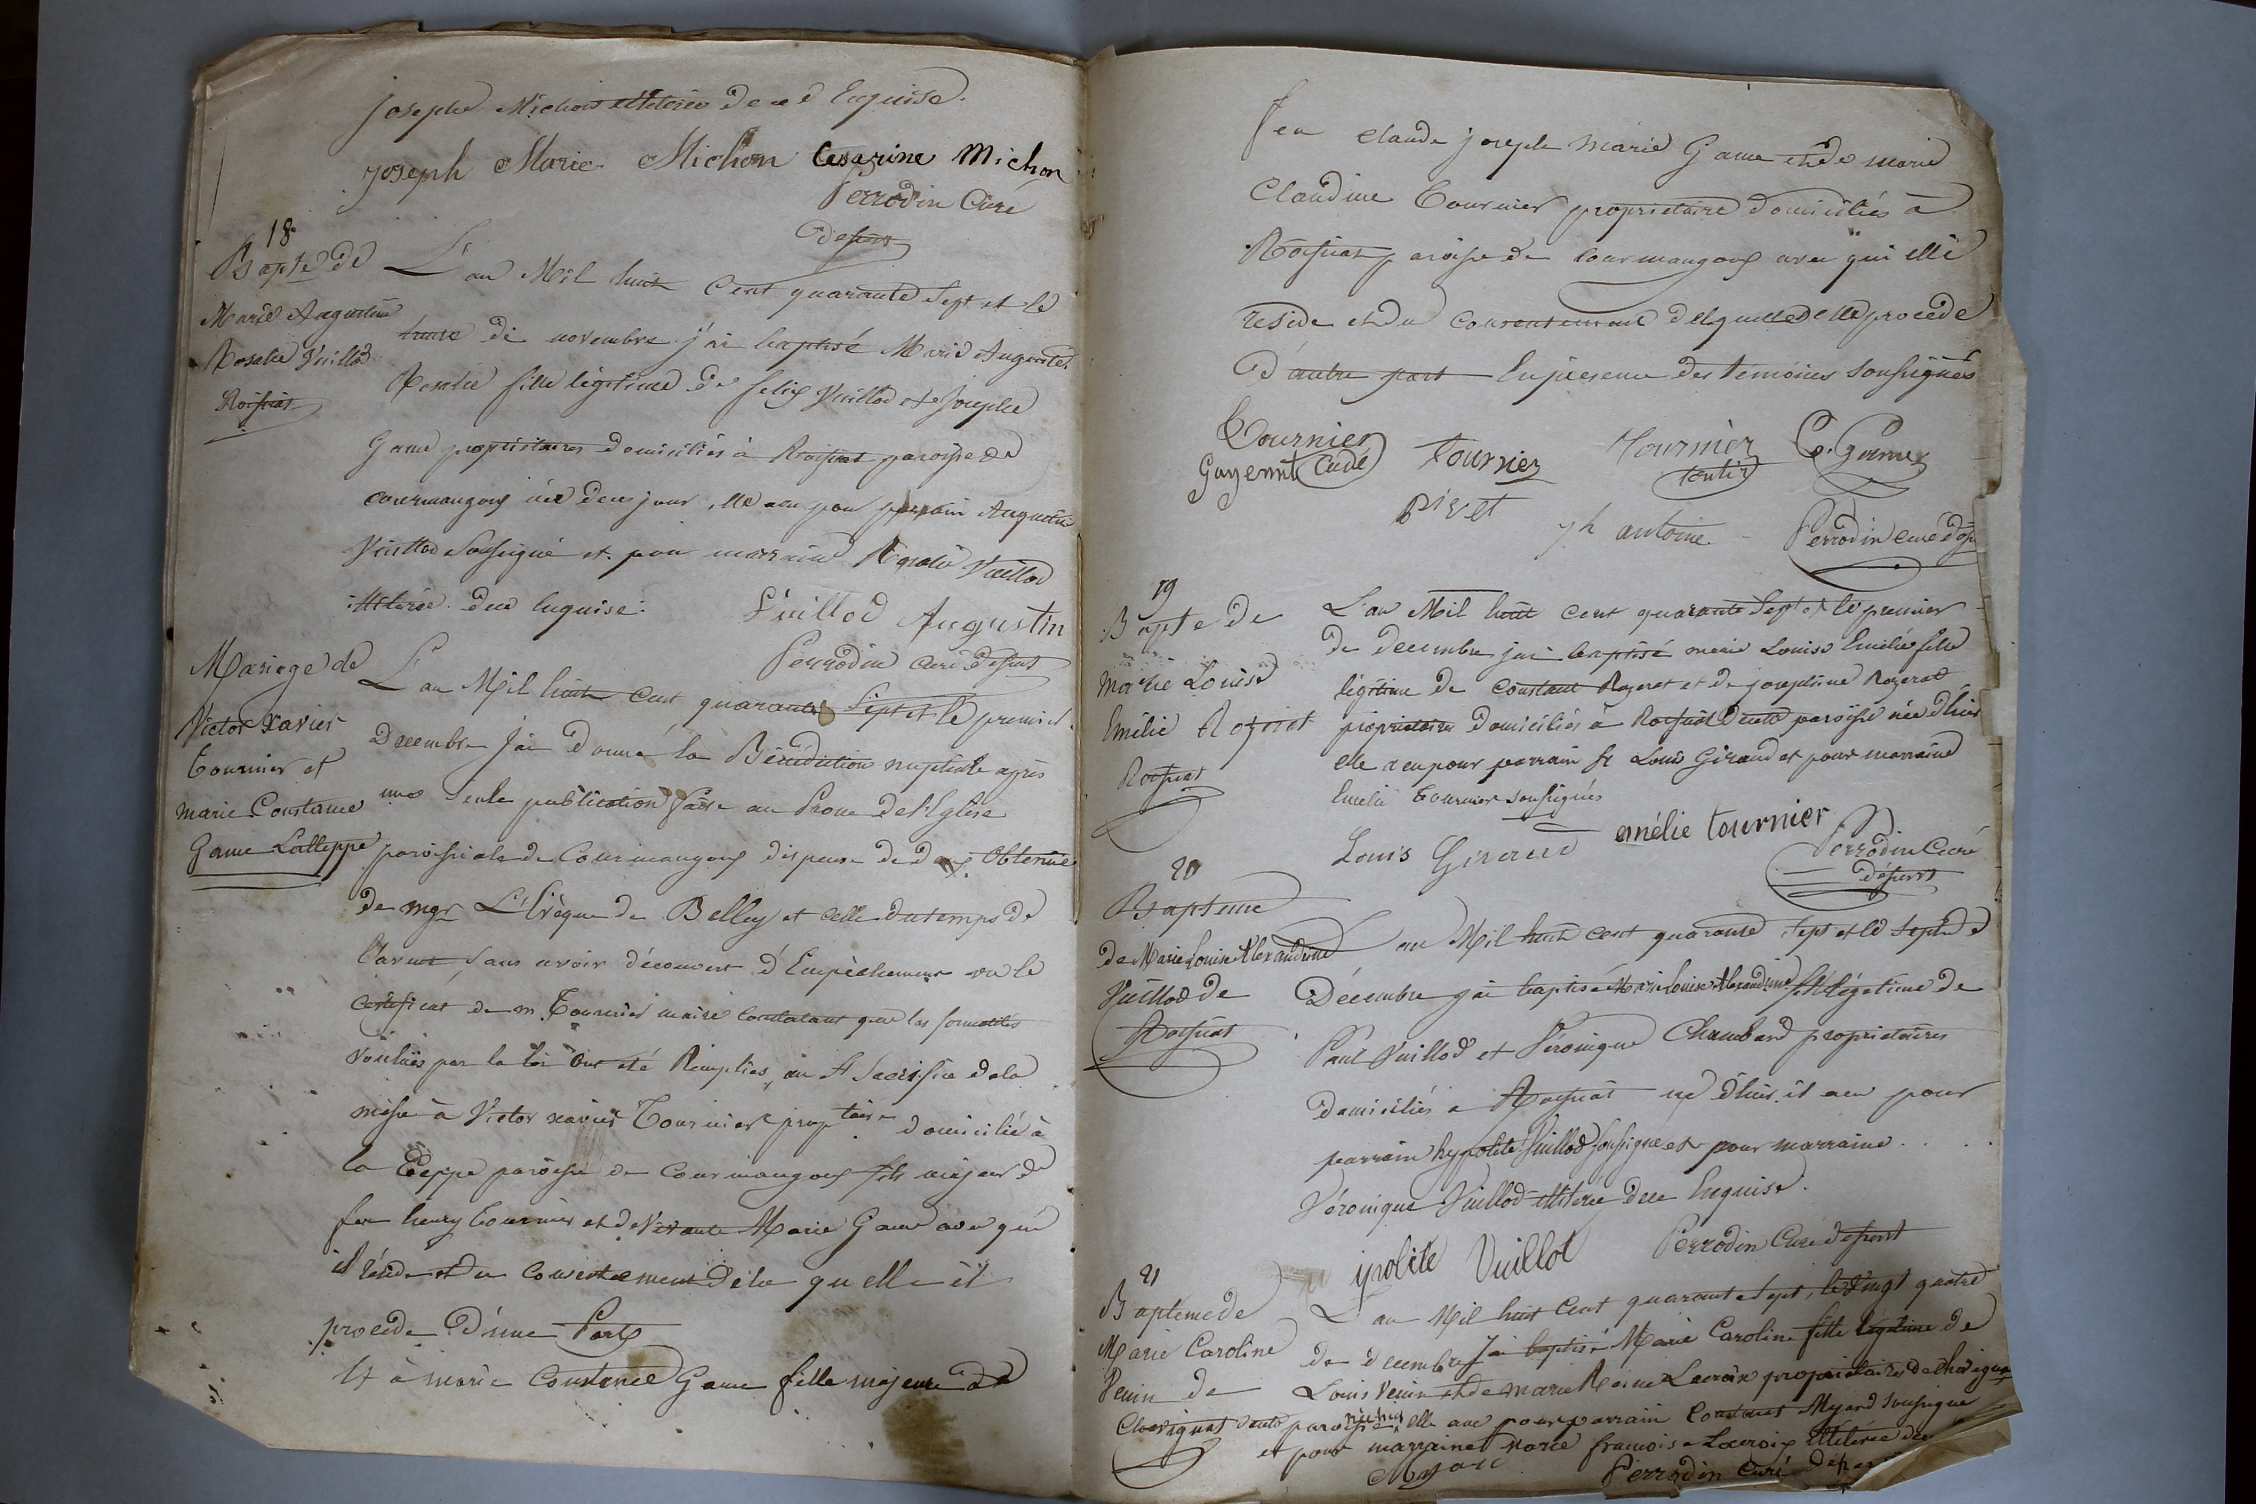 Joseph Michon illiterée de ce Enquise.
Joseph Marie Michon Cesarine Michon
Perrodin Curé
desserv
18
Bapte de
Marie Augustine
Rosalie Vuillod
Roissiat
L'an Mil huit Cent quarante Sept et le
de novembre j'ai baptisé Marie Augustine
Rosalie fille légitime de felix Vuillod et Josephe
Game propriétaires domiciliés à Roissiat paroisse de
courmangoux née de ce jour elle a eu pour parrain Augustin
Vuillod Soussigné et pour marraine Rosalie Vuillod
illiterée de ce enquise.
Vuillod Augustin
Perrodin curé desservt
Mariage de
Victor xavier
tournier et
marie Constance
Game Latteppe
L'an Mil huit cent quarante Sept et le premier
Decembre j'ai Donné la Bénédiction nuptiale après
une Seule publication faite au Prone de l'Eglise
paroissiale de Courmangoux dispense de deux Obtenue
de mgr L'Evêque de Belley et celle du temps de
l'avent, sans avoir découvert d'Empêchement vu le
certificat de m Tournier maire constatant que les formalités
voulues par la loi ont été Remplies, au St Sacrifice de la
messe à Victor xavier Tournier proptaire domicilié à
la Teppe paroisse de Courmangoux fils majeur de
feu henry tournier et de vivante Marie Game avec qui
il réside et du consentement de la quelle il
procède d'une Part
Et à marie Constance Game fille majeure de
feu Claude joseph marie Game et de marie
Claudine Tournier propriétaire domiciliés à
Roissiat paroisse de Courmangoux avec qui elle
reside et du consentement delaquelle elle procède
d'autre part En présence des témoins soussignés
Tournier tournier Tournier C. Game
Cadé
Pivet jh antoine Perrodin curé dess
19
Bapte de
Marie Louise
Emélie Rozerat
Roissiat
L'an Mil huit cent quarante Sept et le premier
de decembre j'ai baptisé marie Louise Emélie fille
légitime de Constant Rozerat et de josephine Rozerat
propriétaires domiciliés à Roissiat dicte paroisse née d'hier
elle a eu pour parrain Louis Giraud et pour marraine
Emélie tournier soussignés
Louis Giraud emélie tournier
Perrodin Curé
desservt
20
Bapteme
de Marie Louise Alexandrine
Vuillod de
Roissiat
L'an Mil huit cent quarante sept et le sept de
Décembre j'ai baptisé Marie Louise Alexandrine fille légitime de
Paul Vuillod et Véronique Chambard propriétaires
domiciliés a Roissiat né d'hier il a eu pour
parrain hypolite Vuillod Soussigné et pour marraine
Véronique Vuillod illiterée dece Enquise.
ypolite Vuillot
Perrodin Curé desservt
21
Baptême de
Marie Caroline
Penin de
Chevignat
L'an Mil huit Cent quarante Sept, le Vingt quatre
de decembre J'ai baptisé Marie Caroline fille légitime de
Louis Penin et de marie Reine Lacroix propriétaires de Chevignat
dicte paroisse, née hier elle a eu pour parrain Constant Myard soussigné
et pour marraine marie francoise Lacroix illiterée de ce
Myard
Perrodin curé desser